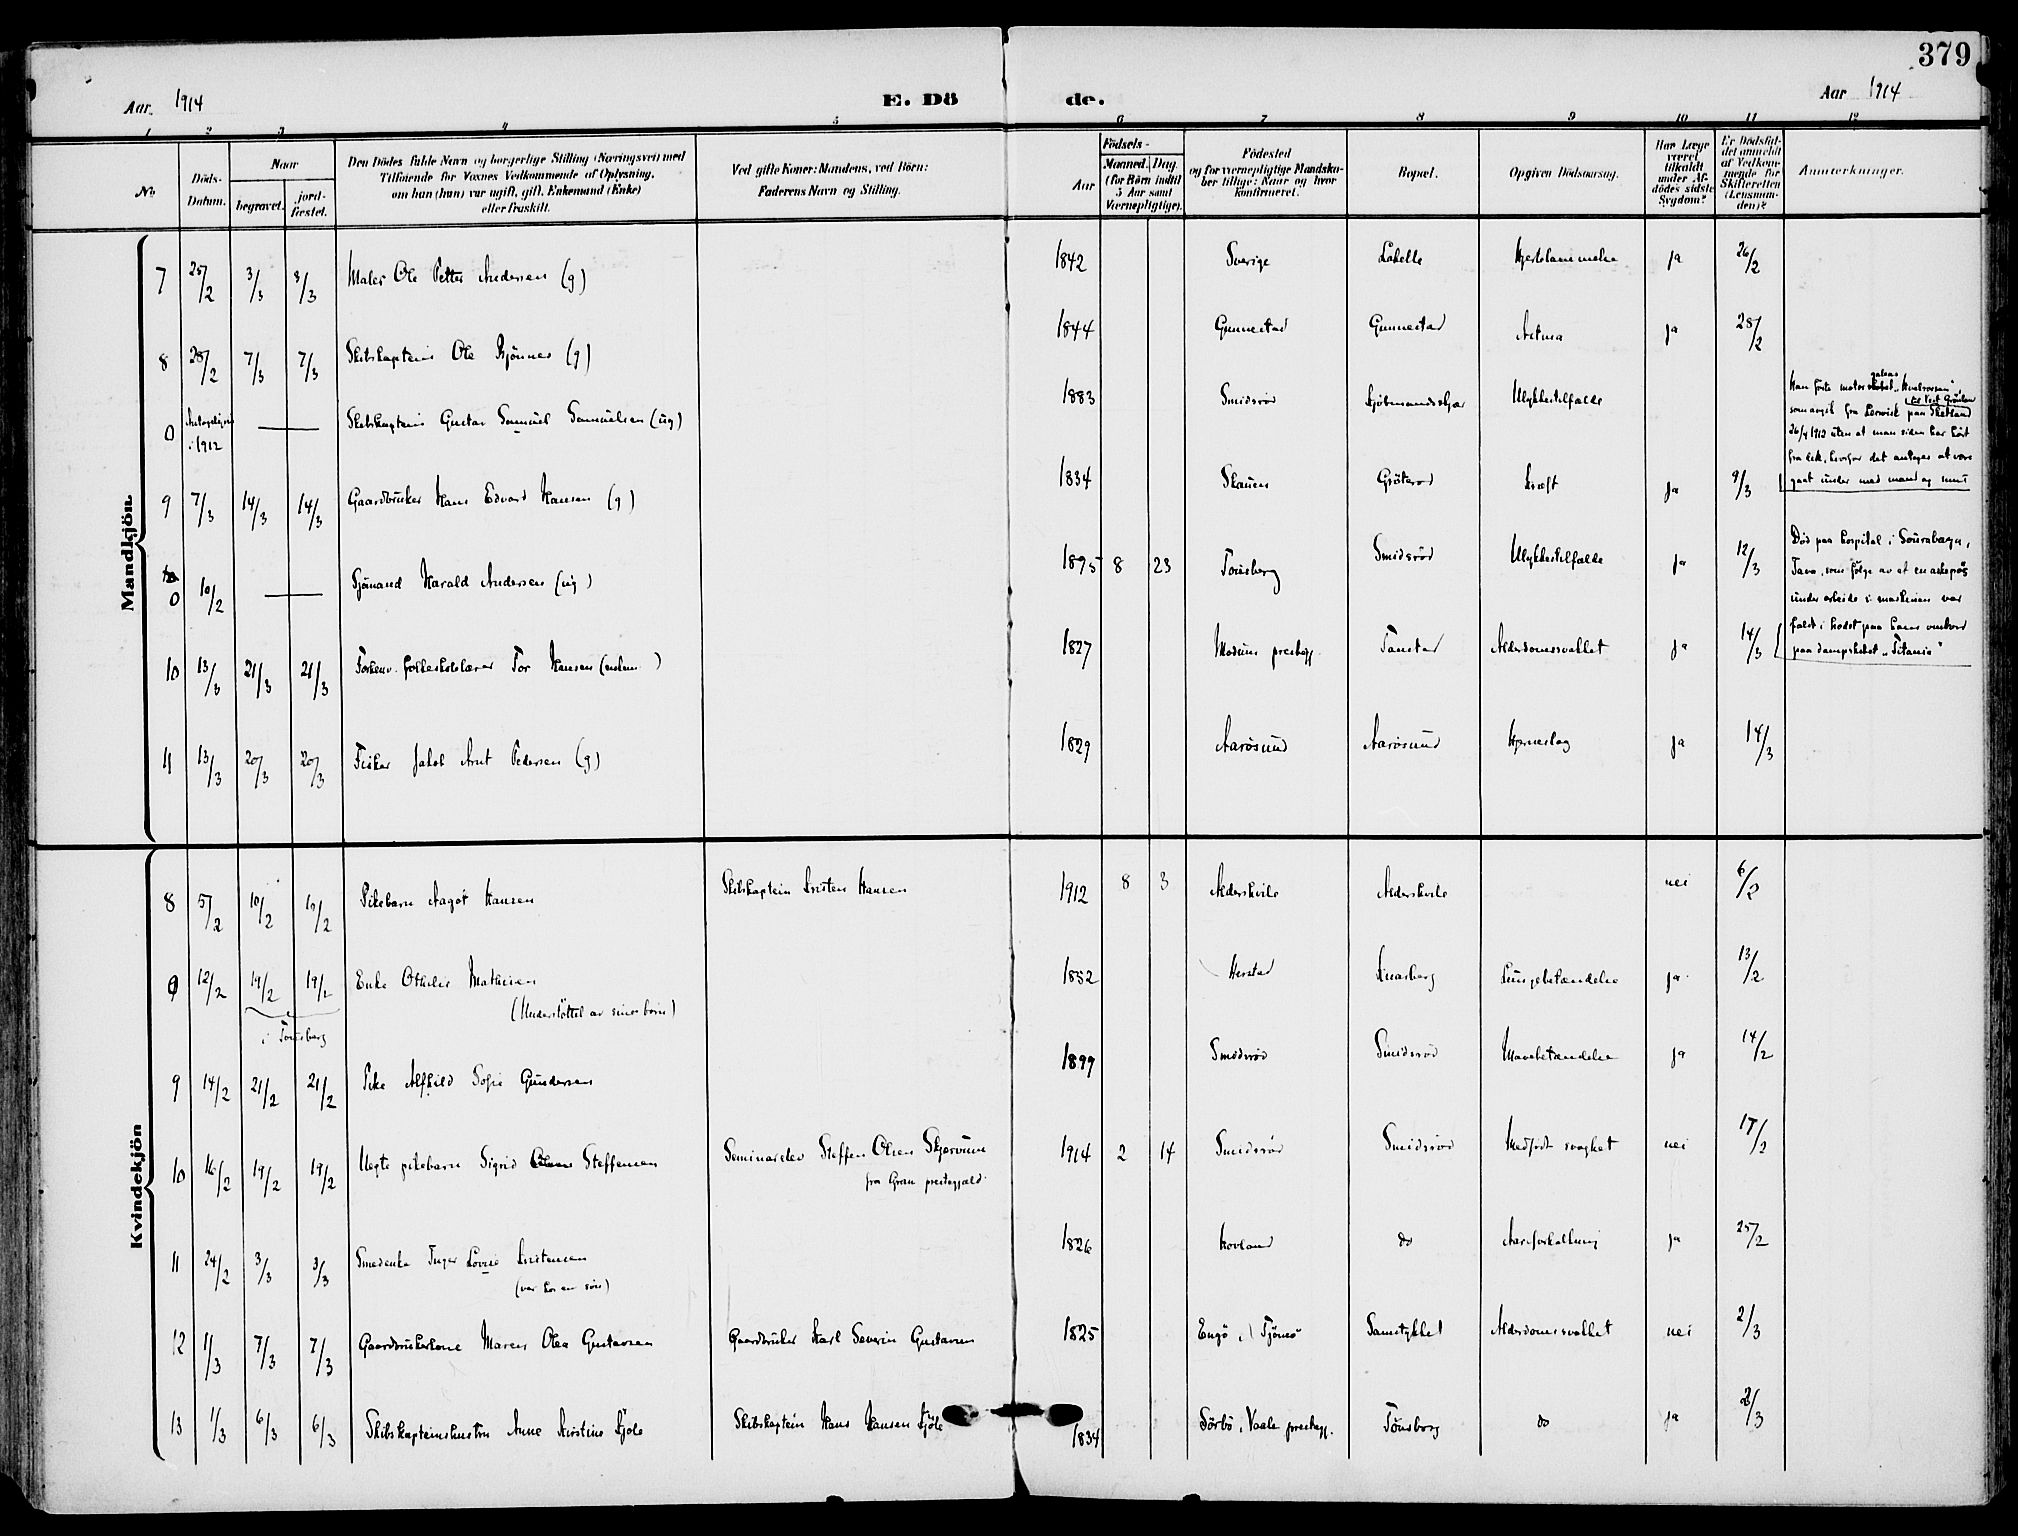 379
Aar 1914 E. Dö de. Aar 1914
1 2 3 4 5 6 7 8 9 10 11 12
No
Döds-Datum.
Naar
begravet.
jordfæstet.
Den Dödes fulde Navn og borgerlige Stilling (Næringsvei) med
Tilföiende for Voxnes Vedkommende af Oplysning,
om han (hun) var ugift, gift, Enkemand (Enke)
eller fraskilt.
Ved gifte Koner: Mandens, ved Börn:
Faderens Navn og Stilling.
Födsels-
Aar
Maaned. Dag.
(for Börn indtil
5 Aar samt
Værnepligtige).
Födested
og for værnepligtige Mandskaber
tillige: Naar og hvor
konfirmeret.
Bopæl.
Opgiven Dödsaarsag.
Har Læge
været
tilkaldt
under Afdödes
sidste
Sygdom?
Er Dödsfaldet
anmeldt
af Vedkommende
for
Skifteretten
(Lensmanden)?
Anmerkninger.
Mandkjön
7 25/2 3/3 3/3 Maler Ole Petter Andersen (g) 1842 Sverige Labella Hjertelammelse ja 26/2
8 28/2 7/3 7/3 Skibskaptein Ole Rjönnes (g) 1844 Gunnestad Gunnestad Astma ja 28/2
0 Antageligvis i 1912 — Skibskaptein Gustav Samuel Samuelsen (ug) 1883 Smidsröd Kjöbmandskjær Ulykkestilfælde
Han förte motorskibet galeas "Hvalrossen"
som avgik fra Lerwick paa Shetland til Vest Grönland
26/4 1912 uten at man siden har hört
fra det, hvorfor det antages at være
gaat under med mand og mus
9 7/3 14/3 14/3 Gaardbruker Hans Edvard Hansen (g) 1834 Skauen Gröteröd Kræft ja 9/3
0 10/2 — Sjömand Harald Andersen (ug) 1895 8 23 Tönsberg Smidsröd Ulykkestilfælde ja 12/3
Död paa hospital i Sourabaya,
Java, som fölge av at en askepös
under arbeide i maskinen var
faldt i hodet paa ham ombord
paa dampskibet "Titania"
10 13/3 21/3 21/3 Forhenv. folkeskolelærer Tor Hansen (enkem.) 1827 Modums prestegj. Tanstad Alderdomssvakhet ja 14/3
11 13/3 20/3 20/3 Fisker Jakob Arnt Pedersen (g) 1829 Aarösund Aarösund Hjerneslag ja 14/3
Kvindekjön
8 5/2 10/2 10/2 Pikebarn Aagot Hansen Skibskaptein Kristen Hansen 1912 8 3 Alderskvile Alderskvile nei 6/2
0 12/2 19/2 19/2 Enke Othilie Mathisen 1852 Herstad Knarberg Lungebetændelse ja 13/2
(Understöttet av sine börn)
i Tönsberg
9 14/2 21/2 21/2 Pike Alfhild Sofie Gundersen 1899 Smidsröd Smidsröd Mavebetændelse ja 14/2
10 16/2 19/2 19/2 Uegte pikebarn Sigrid Steffensen Seminarelev Steffen Olsen Skjervum 1914 2 14 Smidsröd Smidsröd Medfödt svaghet nei 17/2
fra Gran prestegjæld
11 24/2 3/3 3/3 Smedenke Inger Lovise Kristensen 1826 Hovland do Aareforkalkning ja 25/2
(var hos en sön)
12 1/3 7/3 7/3 Gaardbrukerkone Maren Olea Gustavsen Gaardbruker Karl Severin Gustavsen 1825 Engö, Tjömö Samstykket Alderdomssvakhet nei 2/3
13 1/3 6/3 6/3 Skibskapteinshustru Anne Kirstine Fjöle Skibskaptein Hans Hansen Fjöle 1834 Sörbö, Vaale prestegj. Tönsberg do ja 2/3